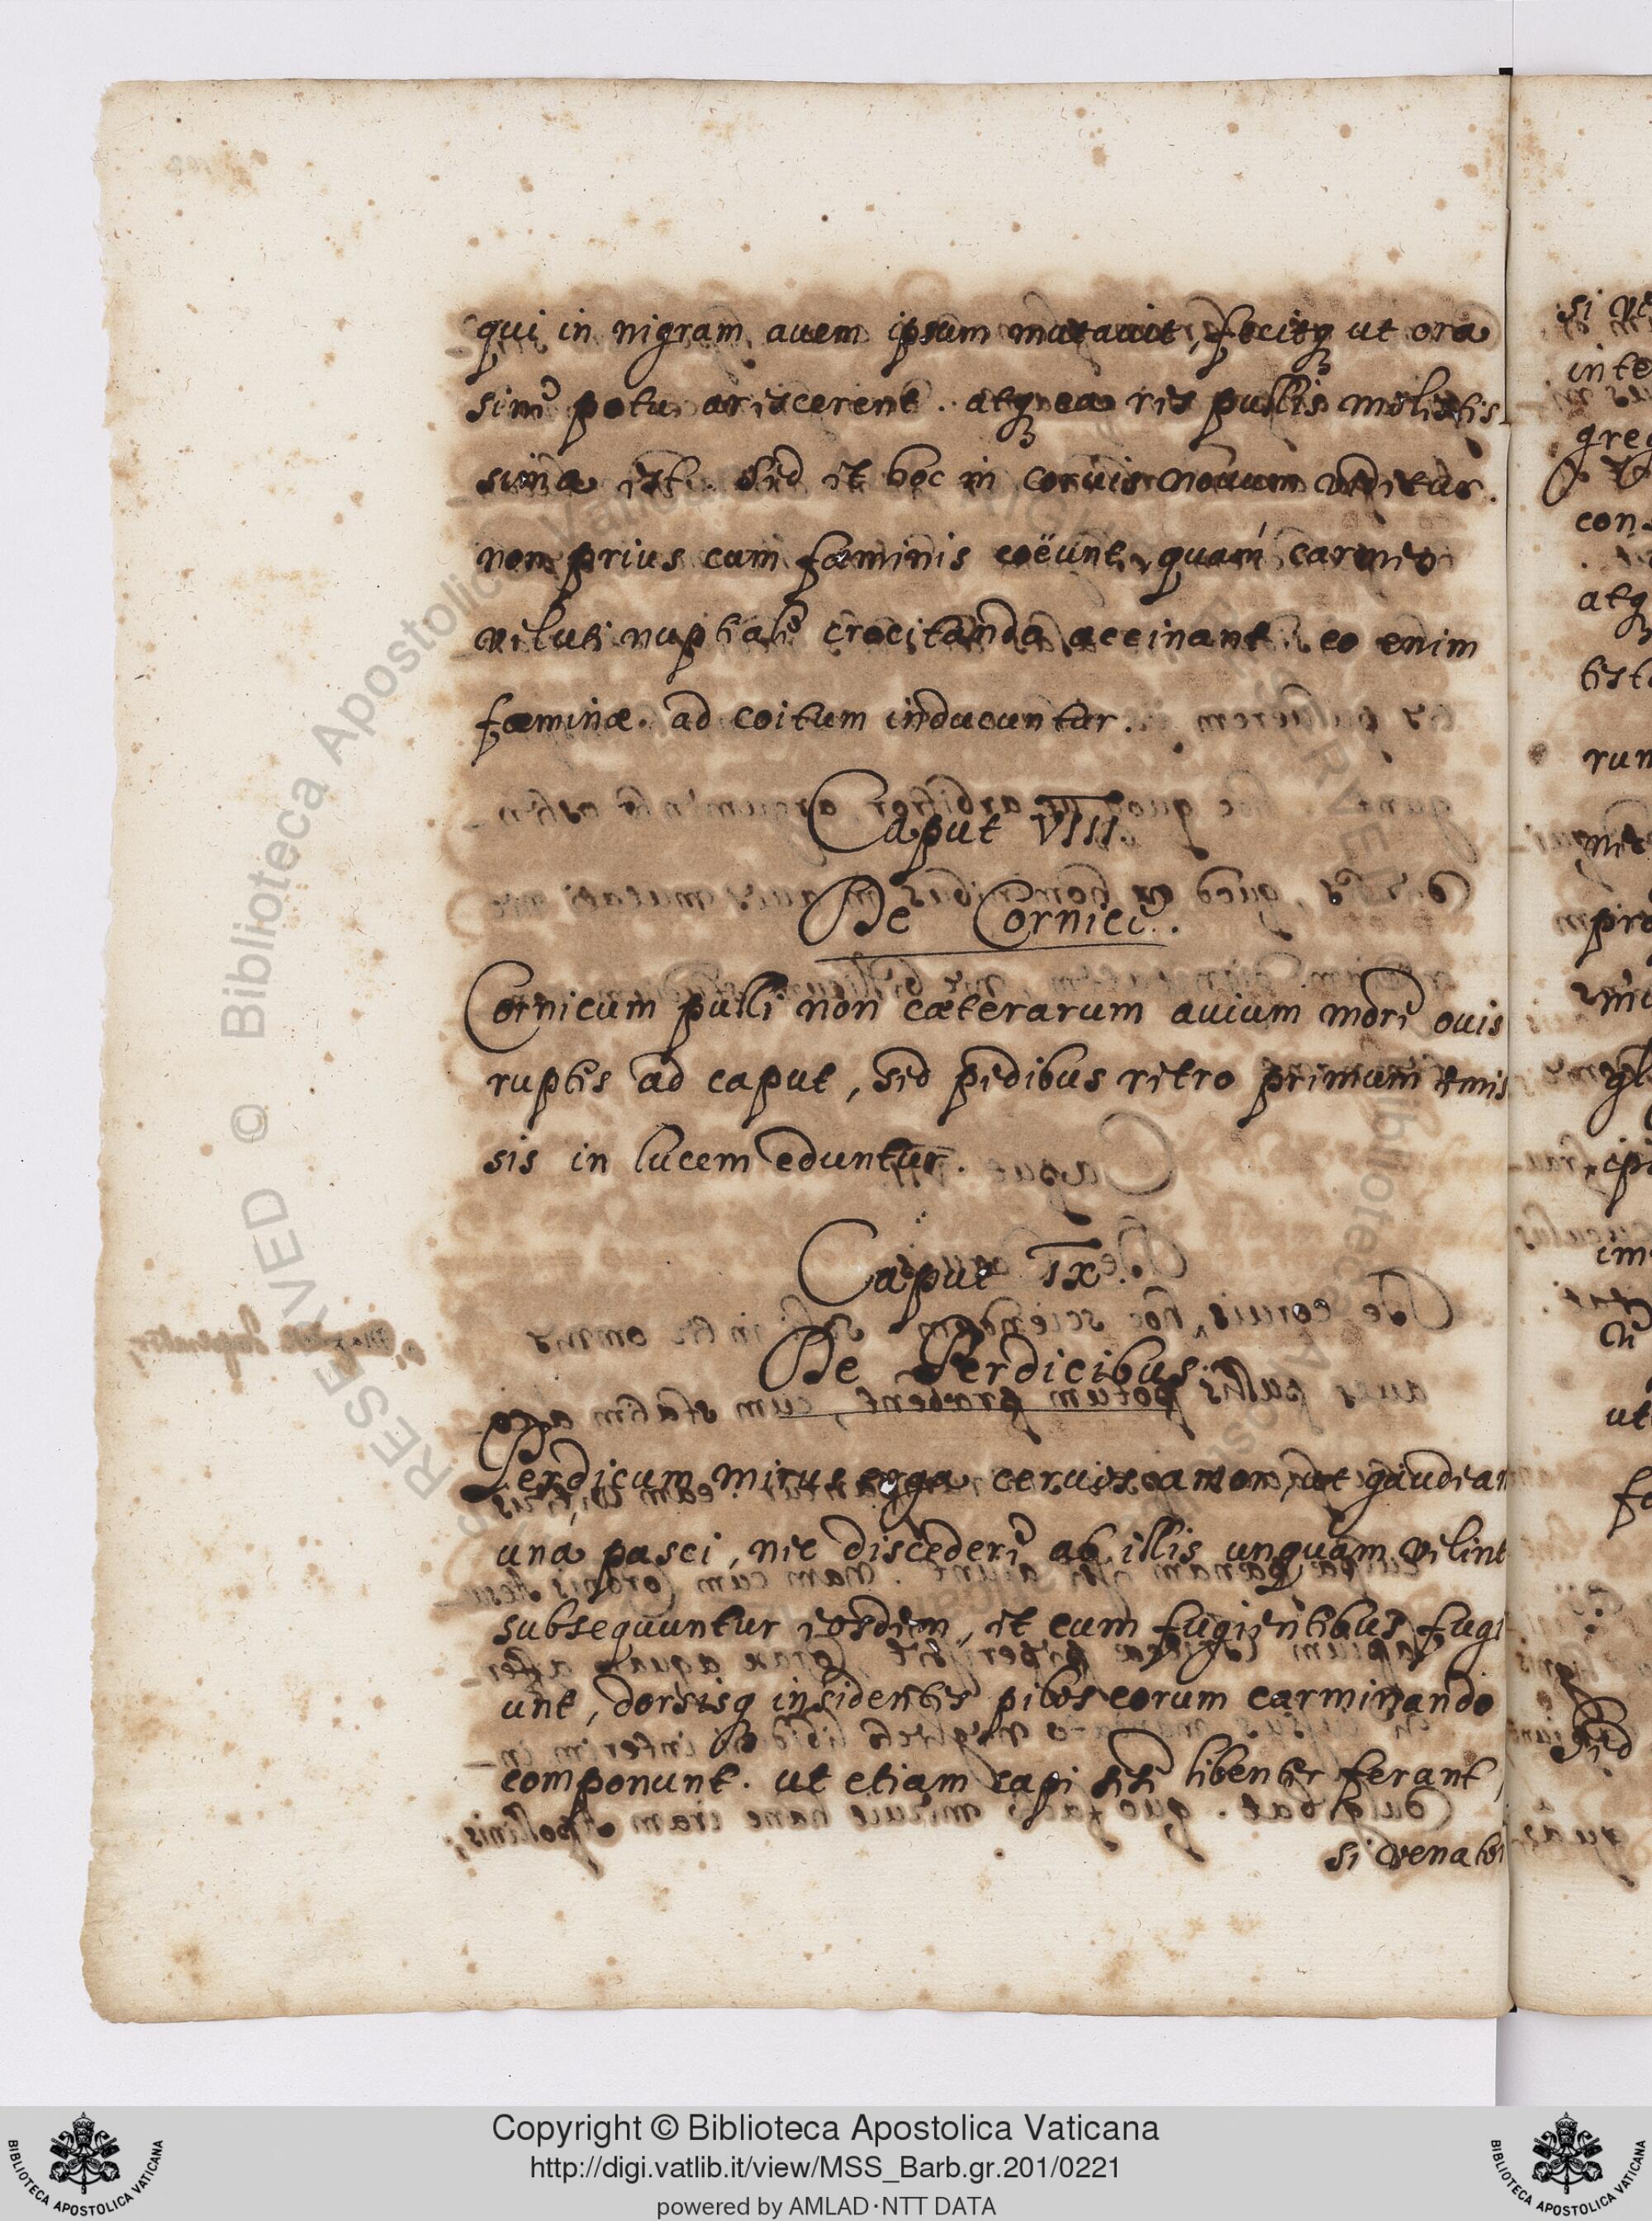 qui in nigram auem ipsum mutauit, fecitq ut ora
sine potu arescerent. atq ea res pullis molestis
sima est. Sed et hoc in coruis nouum videtur.
non prius cum fœminis coëunt, quam carmen
veluti nuptiale crocitando accinant. eo enim
fœminæ ad coitum inducuntur.
Caput VIII.
De Cornice.
Cornicum pulli non cæterarum auium more ouis
ruptis ad caput, sed pedibus retro primum emis
sis in lucem eduntur.
Caput IX.
De Perdicibus.
Perdicum mirus erga ceruos amor, ut gaudean
unà pasci, nec discedere ab illis unquam velint
subsequuntur eosdem, et cum fugientibus fugi
unt, dorsisq insidentes pilos eorum carminando
componunt. ut etiam capi sese libenter ferant,
si vena
Copyright © Biblioteca Apostolica Vaticana
http://digi.vatlib.it/view/MSS_Barb.gr.201/0221
powered by AMLAD·NTT DATA
BIBLIOTECA APOSTOLICA VATICANA
BIBLIOTECA APOSTOLICA VATICANA